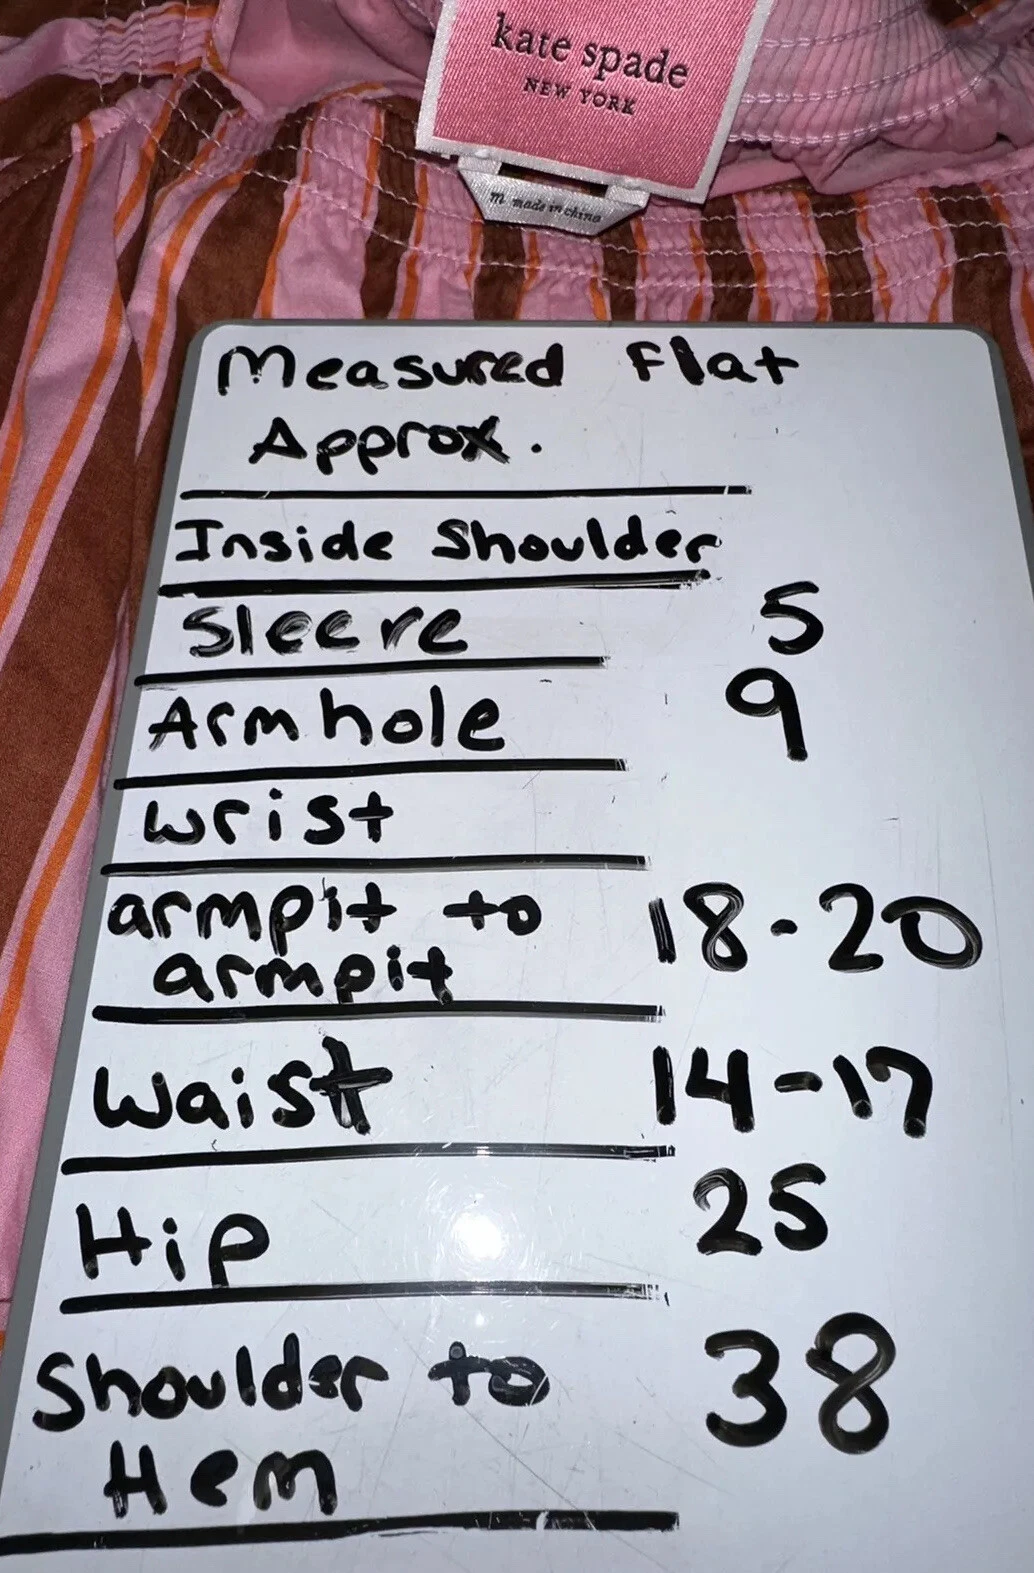 kate spade
NEW YORK
m made in china
Measured Flat
Approx.
Inside Shoulder
Sleeve 5
Armhole 9
Wrist
armpit to 18-20
armpit
Waist 14-17
Hip 25
Shoulder to 38
Hem